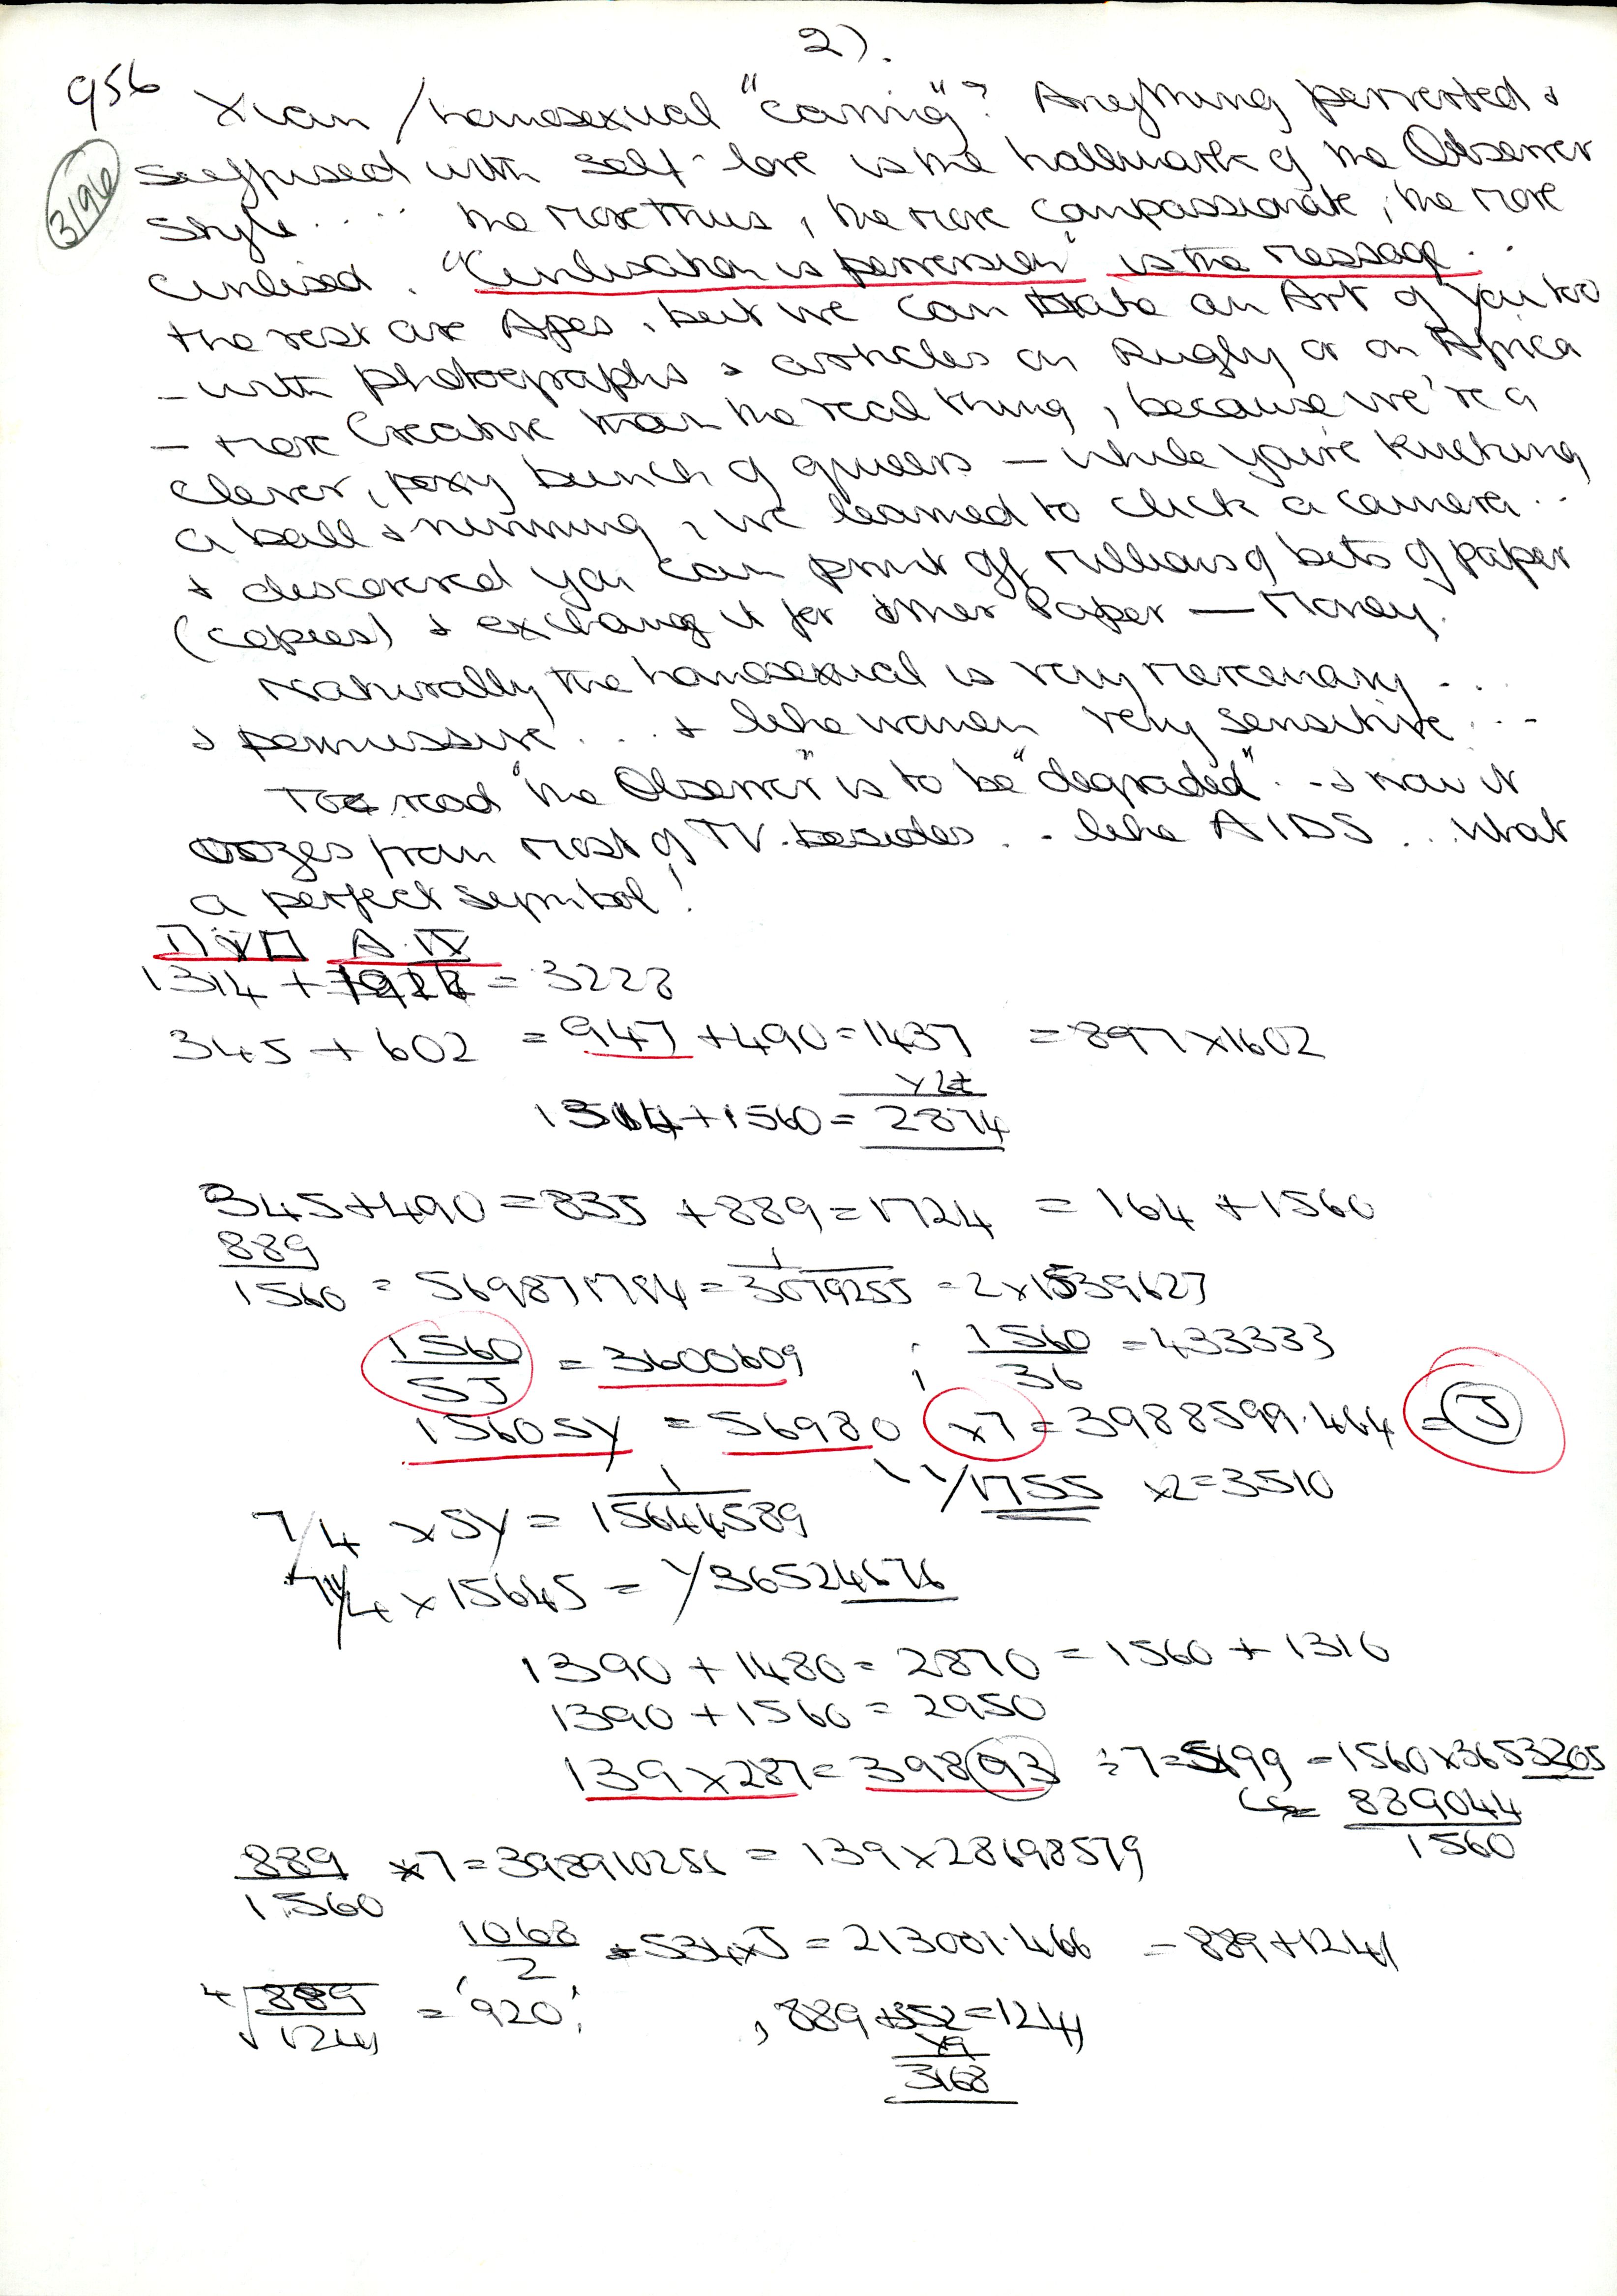 2).
956
3196
Xian / homosexual "caring"? Anything perverted &
suffused with self-love is the hallmark of the Observer
style .... the more thus, the more compassionate, the more
civilised. "Civilisation is perversion" is the message..
the rest are Apes, but we can make an Art of you too
- with photographs & articles on Rugby or on Africa
- more Creative than the real thing, because we're a
clever, poxy bunch of queers - while you're kicking
a ball & running, we learned to click a camera..
& discovered you can print off millions of bits of paper
(copies) & exchange it for other Paper - Money.
Naturally the homosexual is very mercenary ...
& permissive... & like women very sensitive ...
To read "the Observer" is to be "degraded".. & now it
oozes from most of TV besides.. like AIDS... What
a perfect symbol!
1314 + = 3228
345 + 602 = 947 + 490 = 1437 = 897 x 1602
x 2
1314 + 1560 = 2874
345 + 490 = 835 + 889 = 1724 = 164 + 1560
889
1560 = 569871794 = 1/3079255 = 2 x 1539627
1560/5J = 3600609 ; 1560/36 = 433333
1560 5Y = 56980 x7 = 3988599.464 = J
1/1755 x2 = 3510
7/4 x 5Y = 1/15644589
x 15645 = 1/36524676
1390 + 1480 = 2870 = 1560 + 1310
1390 + 1560 = 2950
139 x 287 = 39893 ÷ 7 = 5699 = 1560 x 3653205
= 889044/1560
889/1560 x 7 = 398910256 = 139 x 28698579
1068/2 = 534 x J = 213001.466 = 889 + 1241
4√889/1241 = '920', , 889 + 352 = 1241
x9
3168